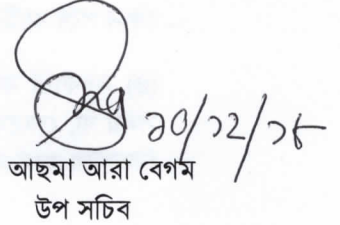 ১০/১২/১৮
আছমা আরা বেগম
উপ সচিব